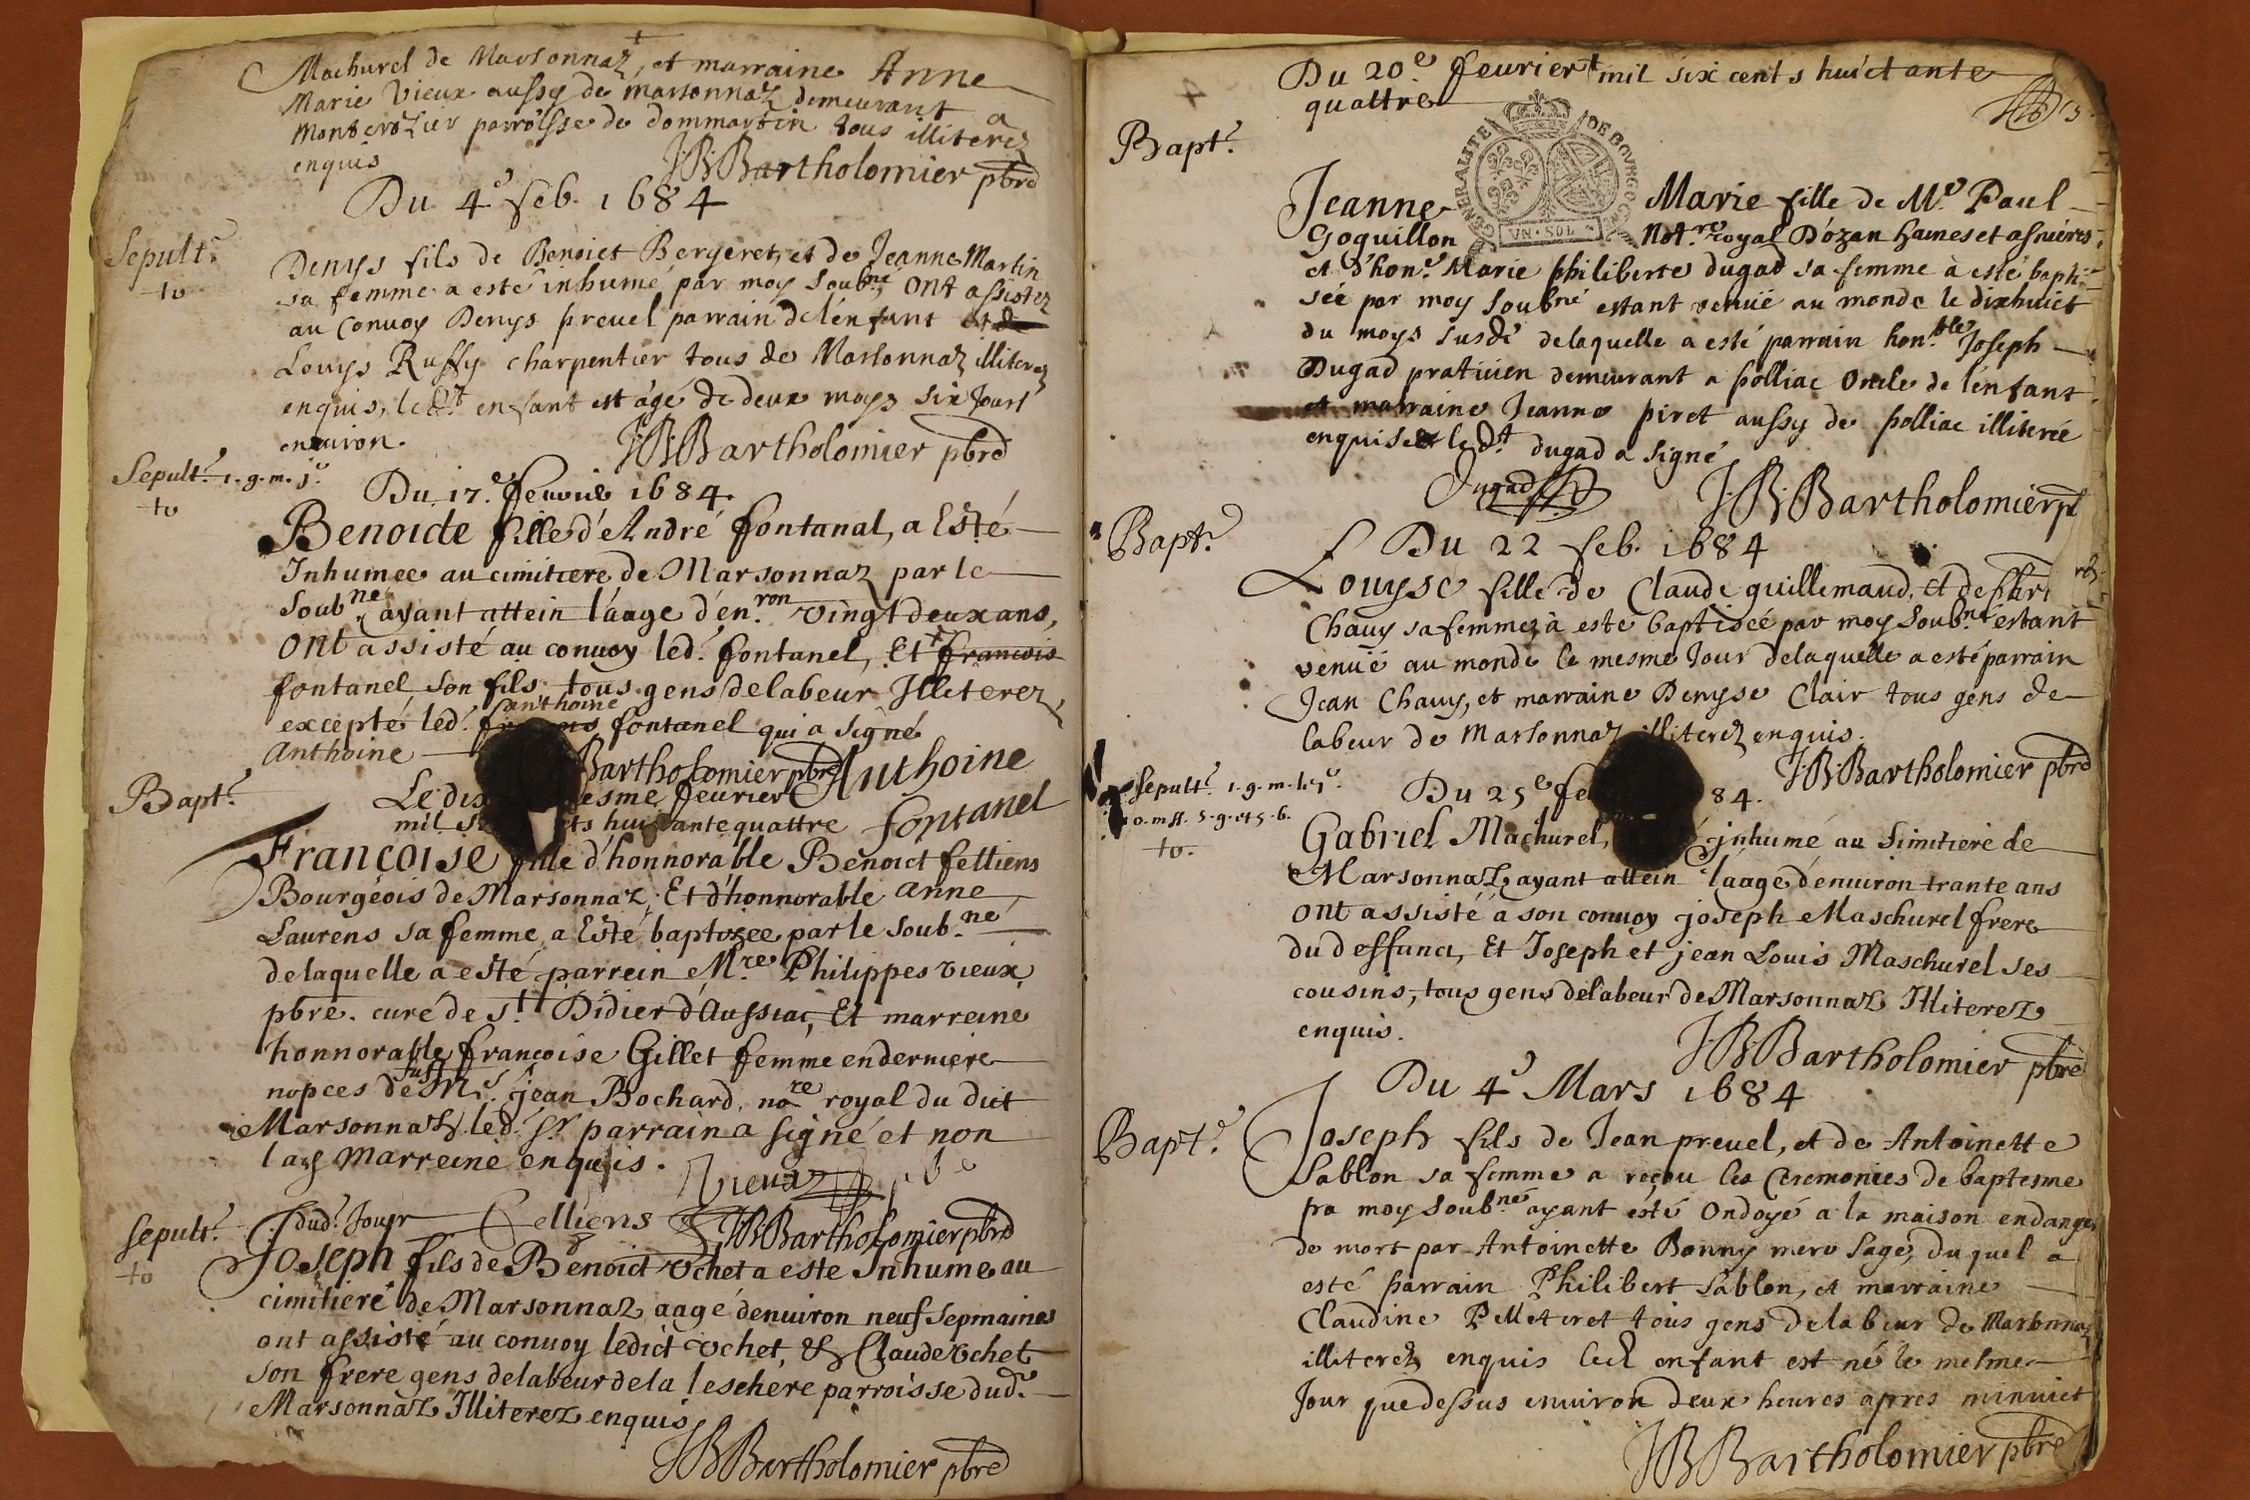 Machurel de Marsonnaz, et marraine Anne
Marie Vieux aussy de marsonnaz demeurant a
Montcrozier parroisse de dommartin tous illiterez
enquis
JB Bartholomier pbre
Du 4e feb. 1684
Sepult.e
to
Denys fils de Benoict Bergeret, et de Jeanne Martin
sa femme a esté inhumé par moy soubné ont assistez
au convoy Denys prevel parrain de lénfant et
Louys Ruffy charpentier tous de Marsonnaz illiterez
enquis, ledt enfant est âgé de deux moys six Jours
environ.
JB Bartholomier pbre
Sepult.e 1. g. m. j.e
to
Du 17.e fevrie 1684.
Benoicte fille d'André fontanal, a Esté
Inhumee au cimitiere de Marsonnaz par le
soub.né ayant attein l'aage d'en.ron vingt deux ans,
ont assisté au convoy led. fontanel, Et francois
fontanel son fils, tous gens de labeur Illiterez
anthoine
excepté led. fontanel qui a signé
Anthoine
Bartholomier pbre
Anthoine
fontanel
Bapt.e
Le di esme feurier
mil s ts huictante quattre
Francoise fille d'honnorable Benoict felliens
Bourgeois de Marsonnaz, Et d'honnorable anne
Laurens sa femme a Esté baptozee par le soub.né
de laquelle a esté parrein M.re Philippes vieux
pbre. curé de s.t Didier d'Aussiac, Et marreine
honnorable francoise Gillet femme en derniere
nopces de M.e jean Bochard, no.re royal du dict
Marsonnaz led. s.r parrain a signé et non
lad marreine enquis.
Vieux
Sepult.e
to
dud.t Jour
felliens
JB Bartholomier pbre
Joseph fils de Benoict vchet a este Inhume au
cimitiere de Marsonnaz aagé denuiron neuf sepmaines
ont assisté au convoy ledict vchet, & Claude vchet
son frere gens de labeur de la leschere parroisse dud.
Marsonnaz Illiterez enquis
JB Bartholomier pbre
Du 20.e feurier mil six cents huictante
quattre
Bapt.e
GENERALITE DE BOVRGOGNE
VN · SOL
Jeanne Marie fille de M.e Paul
Goquillon Not.re royal D'ozan hames et asnieres,
et d'hon.e Marie philiberte dugad sa femme à esté bapti-
sée par moy soubné estant venuë au monde le dixhuict
du moys susdt delaquelle a esté parrain hon.ble Joseph
Dugad praticien demeurant a polliac oncle de l'énfant
et marraine Jeanne piret aussy de polliac illiterée
enquise et le dt dugad a signé
Dugad
JB Bartholomier
Bapt.e
Du 22 feb. 1684
Louyse fille de Claude guillemaud, et de
Chauy sa femme, à este baptisée par moy soub.né estant
venuë au monde le mesme Jour delaquelle a esté parrain
Jean Chauy, et marraine Denyse Clair tous gens de
labeur de Marsonnaz illiterez enquis.
JB Bartholomier pbre
Sepult.e
to.
Du 25e fe 84.
Gabriel Machurel, é inhumé au simitiere de
Marsonnaz ayant attein l'aage d'enuiron trante ans
ont assisté a son convoy joseph Maschurel frere
du deffunct, Et Joseph et jean Louis Maschurel ses
cousins, tous gens de labeur de Marsonnaz Illiterez
enquis.
JB Bartholomier pbre
Du 4e Mars 1684
Bapt.e
Joseph fils de Jean prevel, et de Antoinette
Sablon sa femme a reçeu les Ceremonies de baptesme
pra moy soub.né ayant ésté ondoyé a la maison en danger
de mort par Antoinette Bonny mere sage, du quel a
esté parrain Philibert Sablon, et marraine
Claudine Pelleteret tous gens de labeur de Marsonnaz
illiterez enquis led enfant est né le mesme
Jour que dessus enuiron deux heures apres minuict
JB Bartholomier pbre